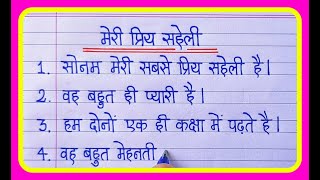 मेरी प्रिय सहेली
1. सोनम मेरी सबसे प्रिय सहेली है।
2. वह बहुत ही प्यारी है।
3. हम दोनों एक ही कक्षा में पढ़ते है।
4. वह बहुत मेहनती